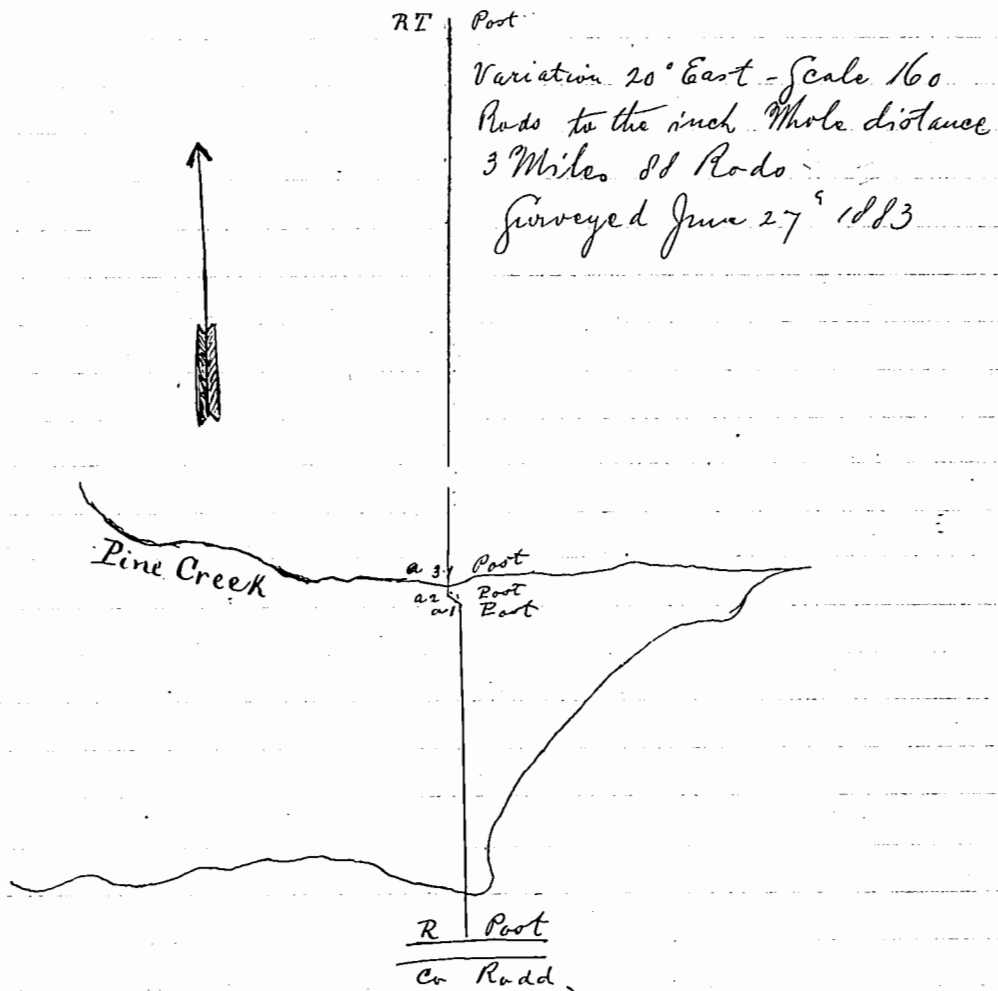 RT Post
Variation 20° East - Scale 160
Rods to the inch Whole distance
3 Miles 88 Rods
Surveyed June 27 1883
Pine Creek
a 3 Post
a 2 Post
a 1 Post
R Post
Co Rodd